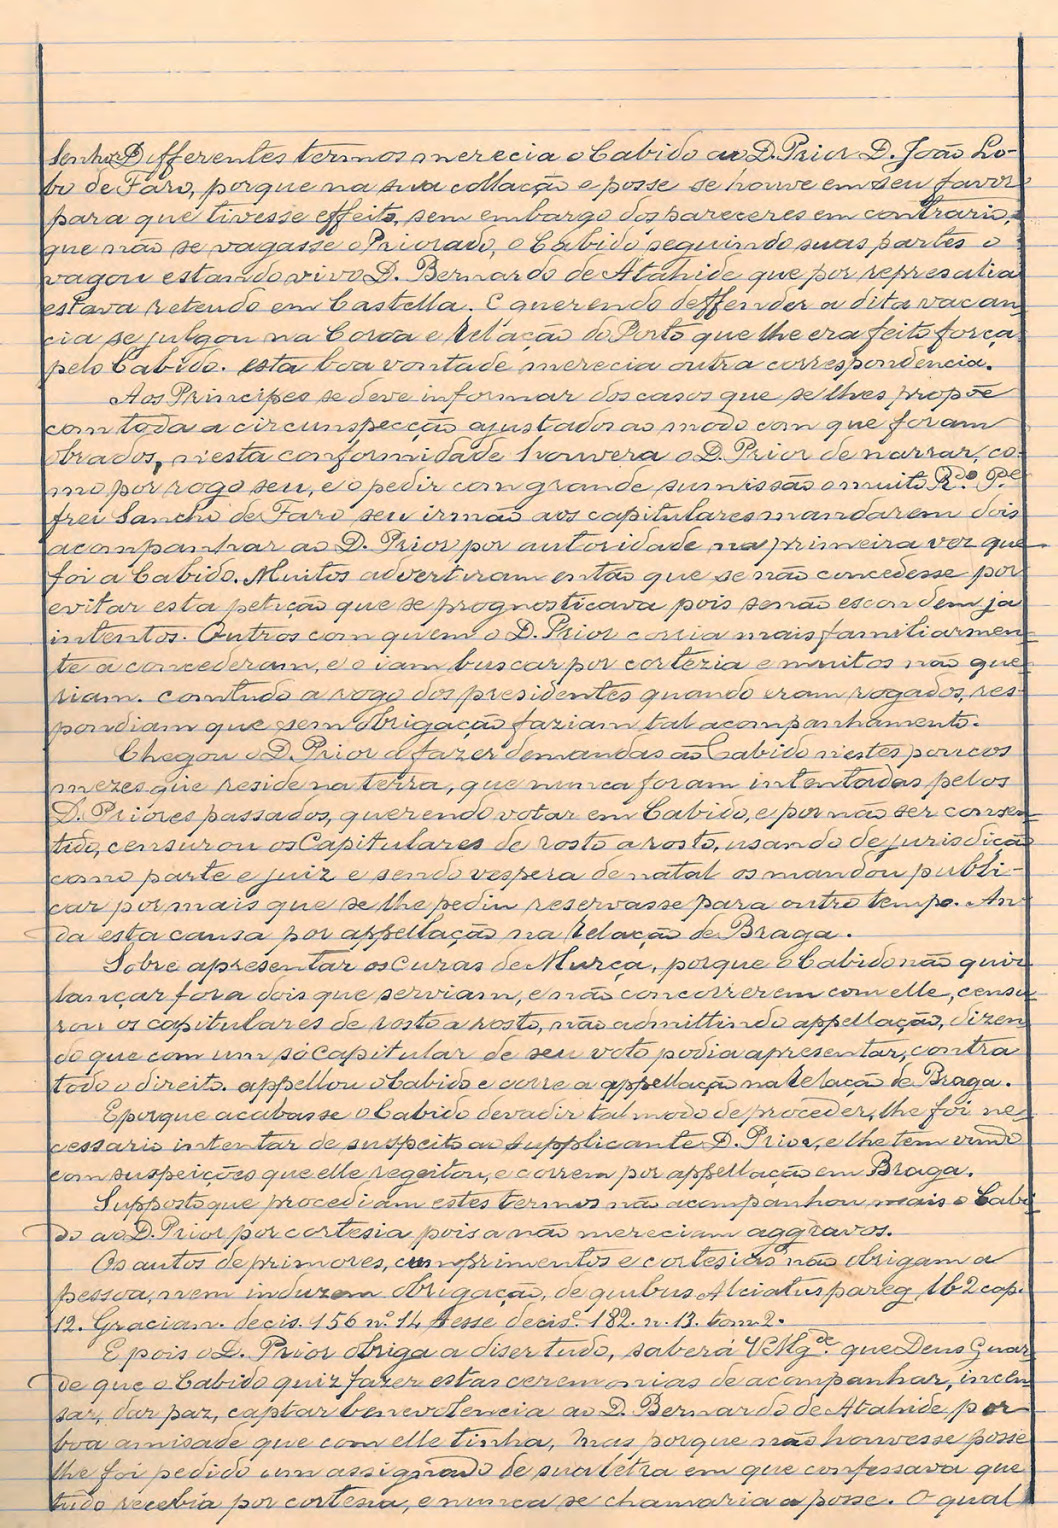 Senhor Differentes termos merecia o Cabido ao D. Prior D. João Lo-
bo de Faro, porque na sua collação e posse se houve em seu favor
para que tivesse effeito, sem embargo dos pareceres em contrario,
que não se vagasse o Priorado, o Cabido seguindo suas partes o
vagou estando vivo D. Bernardo de Atahide que por represalia
estava retendo em Castella. E querendo deffender a dita vacan
cia se julgou na Coroa e Relação do Porto que lhe era feito força
pelo Cabido. esta boa vontade merecia outra correspondencia.
Aos Principes se deve informar dos casos que se lhes propõe
com toda a circunspecção ajustados ao modo com que foram
obrados, n'esta conformidade houvera o D. Prior de narrar, co-
mo por rogo seu, e o pedir com grande sumissão o muito R.do P.e
frei Sancho de Faro seu irmão aos capitulares mandarem dois
acompanhar ao D. Prior por autoridade na primeira vez que
foi a Cabido. Muitos advertiram então que se não concedesse por
evitar esta petição que se prognosticava pois se não escondem ja
intentos. Outros com quem o D. Prior corria mais familiarmen-
te a concederam, e o iam buscar por cortezia e muitos não que-
riam. comtudo a rogo dos presidentes quando eram rogados, res-
pondiam que sem obrigação faziam tal acompanhamento.
Chegou o D. Prior a fazer demandas ao Cabido n'estes poucos
mezes que reside na terra, que nunca foram intentadas pelos
D. Priores passados, querendo votar em Cabido, e por não ser consen
tido, censurou os Capitulares de rosto a rosto, usando de jurisdição
como parte e juiz e sendo vespera de natal os mandou publi-
car por mais que se lhe pediu reservasse para outro tempo. An-
da esta causa por appellação na Relação de Braga.
Sobre apresentar os Curas de Murça, porque o Cabido não quiz
lançar fora dois que serviam, e não concorrerem com elle, censu
rou os capitulares de rosto a rosto, não admittindo appellação, dizen
do que com um só Capitular de seu voto podia apresentar, contra
todo o direito. appellou o Cabido e corre a appellação na Relação de Braga.
E porque acabasse o Cabido de vadir tal modo de proceder, lhe foi ne-
cessario intentar de suspeito ao Supplicante D. Prior, e lhe tem vindo
com suspeições que elle regeitou, e correm por appellação em Braga.
Supposto que procediam estes termos não acompanhou mais o Cabi-
do ao D. Prior por cortesia pois a não mereciam aggravos.
Os autos de primores, cumprimentos e cortesias não obrigam a
pessoa, nem induzem obrigação, de quibus Alciatus pareg. 162 cap.
12. Gracian. decis. 156 nº 14 desse decis.º 182. n. 13. tom 2.
E pois o D. Prior obriga a diser tudo, saberá V Mg.de que Deus Guar-
de que o Cabido quiz fazer estas ceremonias de acompanhar, incen-
sar, dar paz, captar benevolencia ao D. Bernardo de Atahide, por
boa amisade que com elle tinha, mas porque não houvesse posse
lhe foi pedido um assignado de sua letra em que confessava que
tudo recebia por cortesia, e nunca se chamaria a posse. O qual